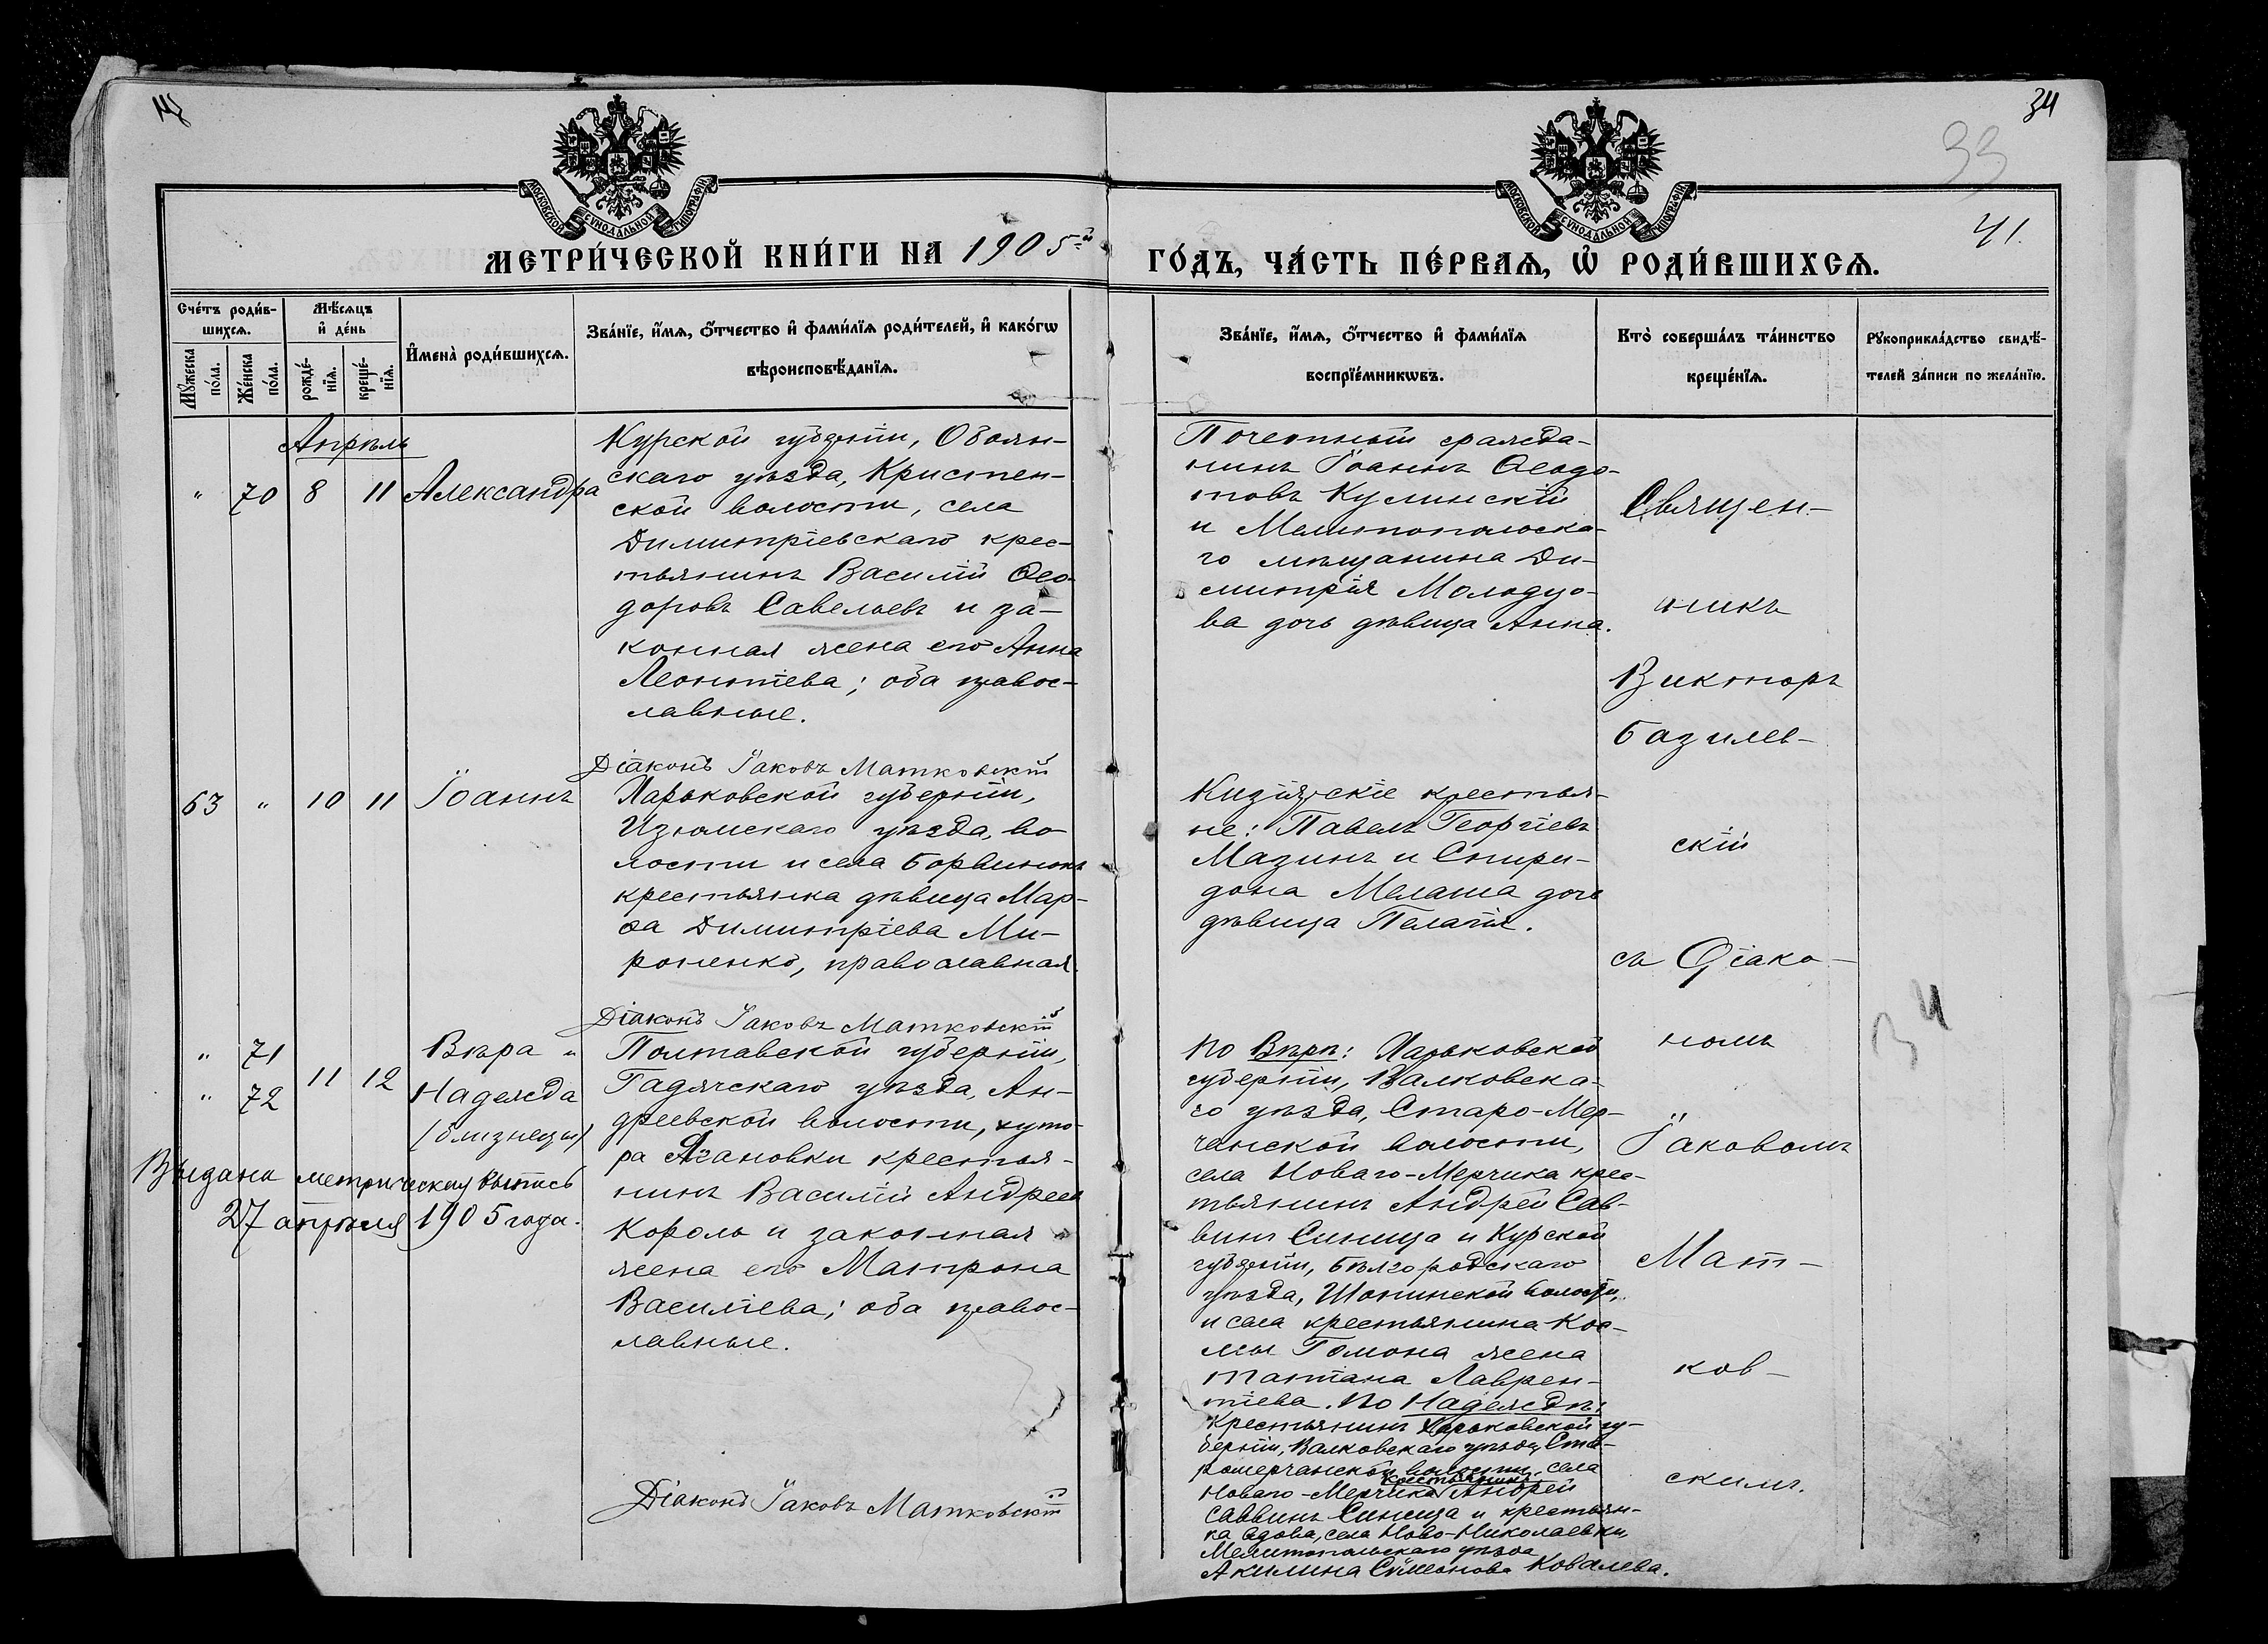 34
33
41.
МОСКОВСКОЙ СѴНОДАЛЬНОЙ ТИПОГРАФІИ
МОСКОВСКОЙ СѴНОДАЛЬНОЙ ТИПОГРАФІИ
МЕТРИ́ЧЕСКОЙ КНИ́ГИ НА 1905й ГО́ДЪ, ЧА́СТЬ ПЕ́РВАѦ, Ѡ҆ РОДИ́ВШИХСѦ.
Сче́тъ роди́в-
шихсѧ.
Мꙋ́жеска
по́ла.
Же́нска
по́ла.
Мѣ́сѧцъ
и҆ де́нь
рожде́-
нїѧ.
креще́-
нїѧ.
И҆мена̀ роди́вшихсѧ.
Зва́нїе, и҆́мѧ, ѻ҆́тчество и҆ фами́лїѧ роди́телей, и҆ како́гѡ
вѣроисповѣ́данїѧ.
Зва́нїе, и҆́мѧ, ѻ҆́тчество и҆ фами́лїѧ
воспрїе́мникѡвъ.
Кто̀ соверша́лъ та́инство
креще́нїѧ.
Рꙋкоприкла́дство свидѣ́-
телей за́писи по жела́нїю.
Апрѣль
" 70 8 11 Александра
Курской губерніи, Обоян-
скаго уѣзда, Кристен-
ской волости, села
Димитріевскаго крес-
тьянинъ Василій Ѳео-
доровъ Савельевъ и за-
конная жена его Анна
Леонтіева; оба правос-
лавные.
Діаконъ Іаковъ Матковскій
Почетный гражда-
нинъ Іоаннъ Ѳеодо-
товъ Кулинскій
и Мелитопольска-
го мѣщанина Ди-
митрія Молодцо-
ва дочь дѣвица Анна.
63 " 10 11 Іоаннъ
Харьковской губерніи,
Изюмскаго уѣзда, во-
лости и села Борвинокъ
крестьянка дѣвица Мар-
ѳа Димитріева Ми-
роненко, православная.
Діаконъ Іаковъ Матковскій
Кизіярскіе крестья-
не: Павелъ Георгіевъ
Мазинъ и Спири-
дона Мелаша дочь
дѣвица Пелагія.
" 71
" 72
11 12
Вѣра и
Надежда
(близнецы)
Выдана метрическая выпись
27 апрѣля 1905 года.
Полтавской губерніи,
Гадячскаго уѣзда, Ан-
дреевской волости, хуто-
ра Агановки крестья-
нинъ Василій Андреевъ
Король и законная
жена его Матрона
Василіева; оба правос-
лавные.
Діаконъ Іаковъ Матковскій
По Вѣрѣ: Харьковской
губерніи, Валковска-
го уѣзда, Старо-Мер-
чанской волости,
села Новаго-Мерчика крес-
тьянинъ Андрей Сав-
винъ Синица и Курской
губерніи, Бѣлгородскаго
уѣзда, Шопинской волости,
и села крестьянина Кос-
мы Гомона жена
Татіана Лаврен-
тіева. По Надеждѣ:
Крестьянинъ Харьковской гу-
берніи, Валковскаго уѣзда, Ста-
ромерчанской волости, села
Новаго-Мерчика крестьянинъ Андрей
Саввинъ Синица и крестьян-
ка вдова, села Ново-Николаевки,
Мелитопольскаго уѣзда
Акилина Сѵмеонова Ковалева.
Священ-
никъ
Викторъ
Базилев-
скій
съ Діако-
номъ
Іаковомъ
Мат-
ков-
скимъ.
34